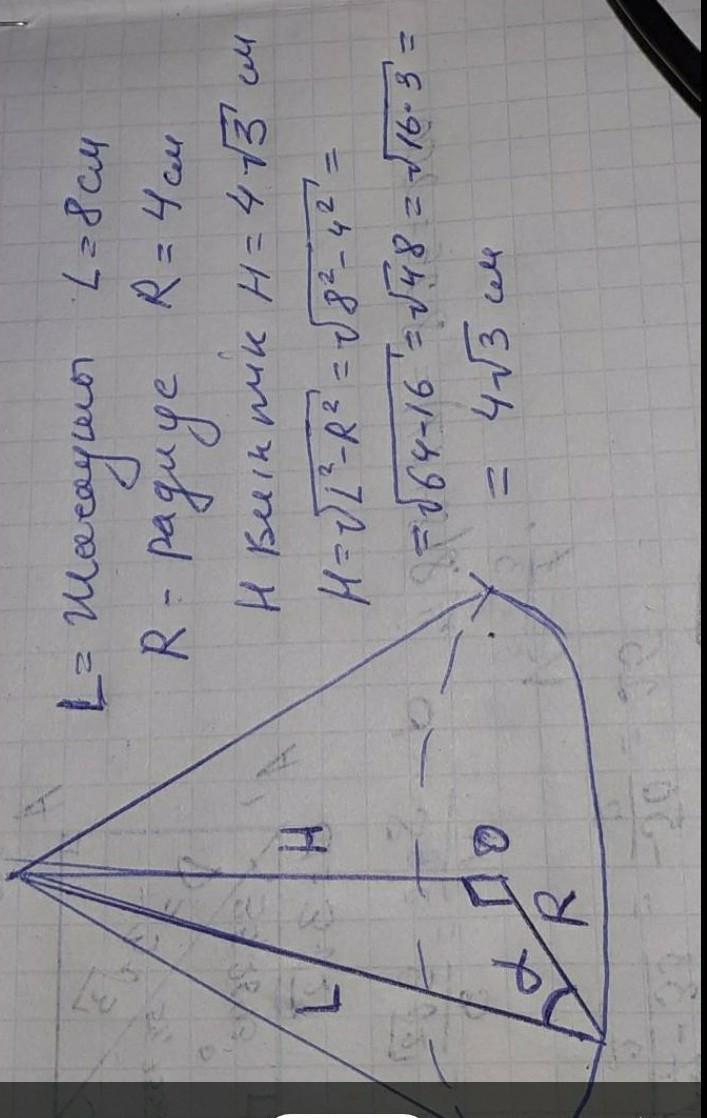 L = Жасаушы L = 8 см
R - радиус R = 4 см
H биіктік H = 4√3 см
H = √L² - R² = √8² - 4² =
= √64 - 16 = √48 = √16·3 =
= 4√3 см
H
L
O
R
α